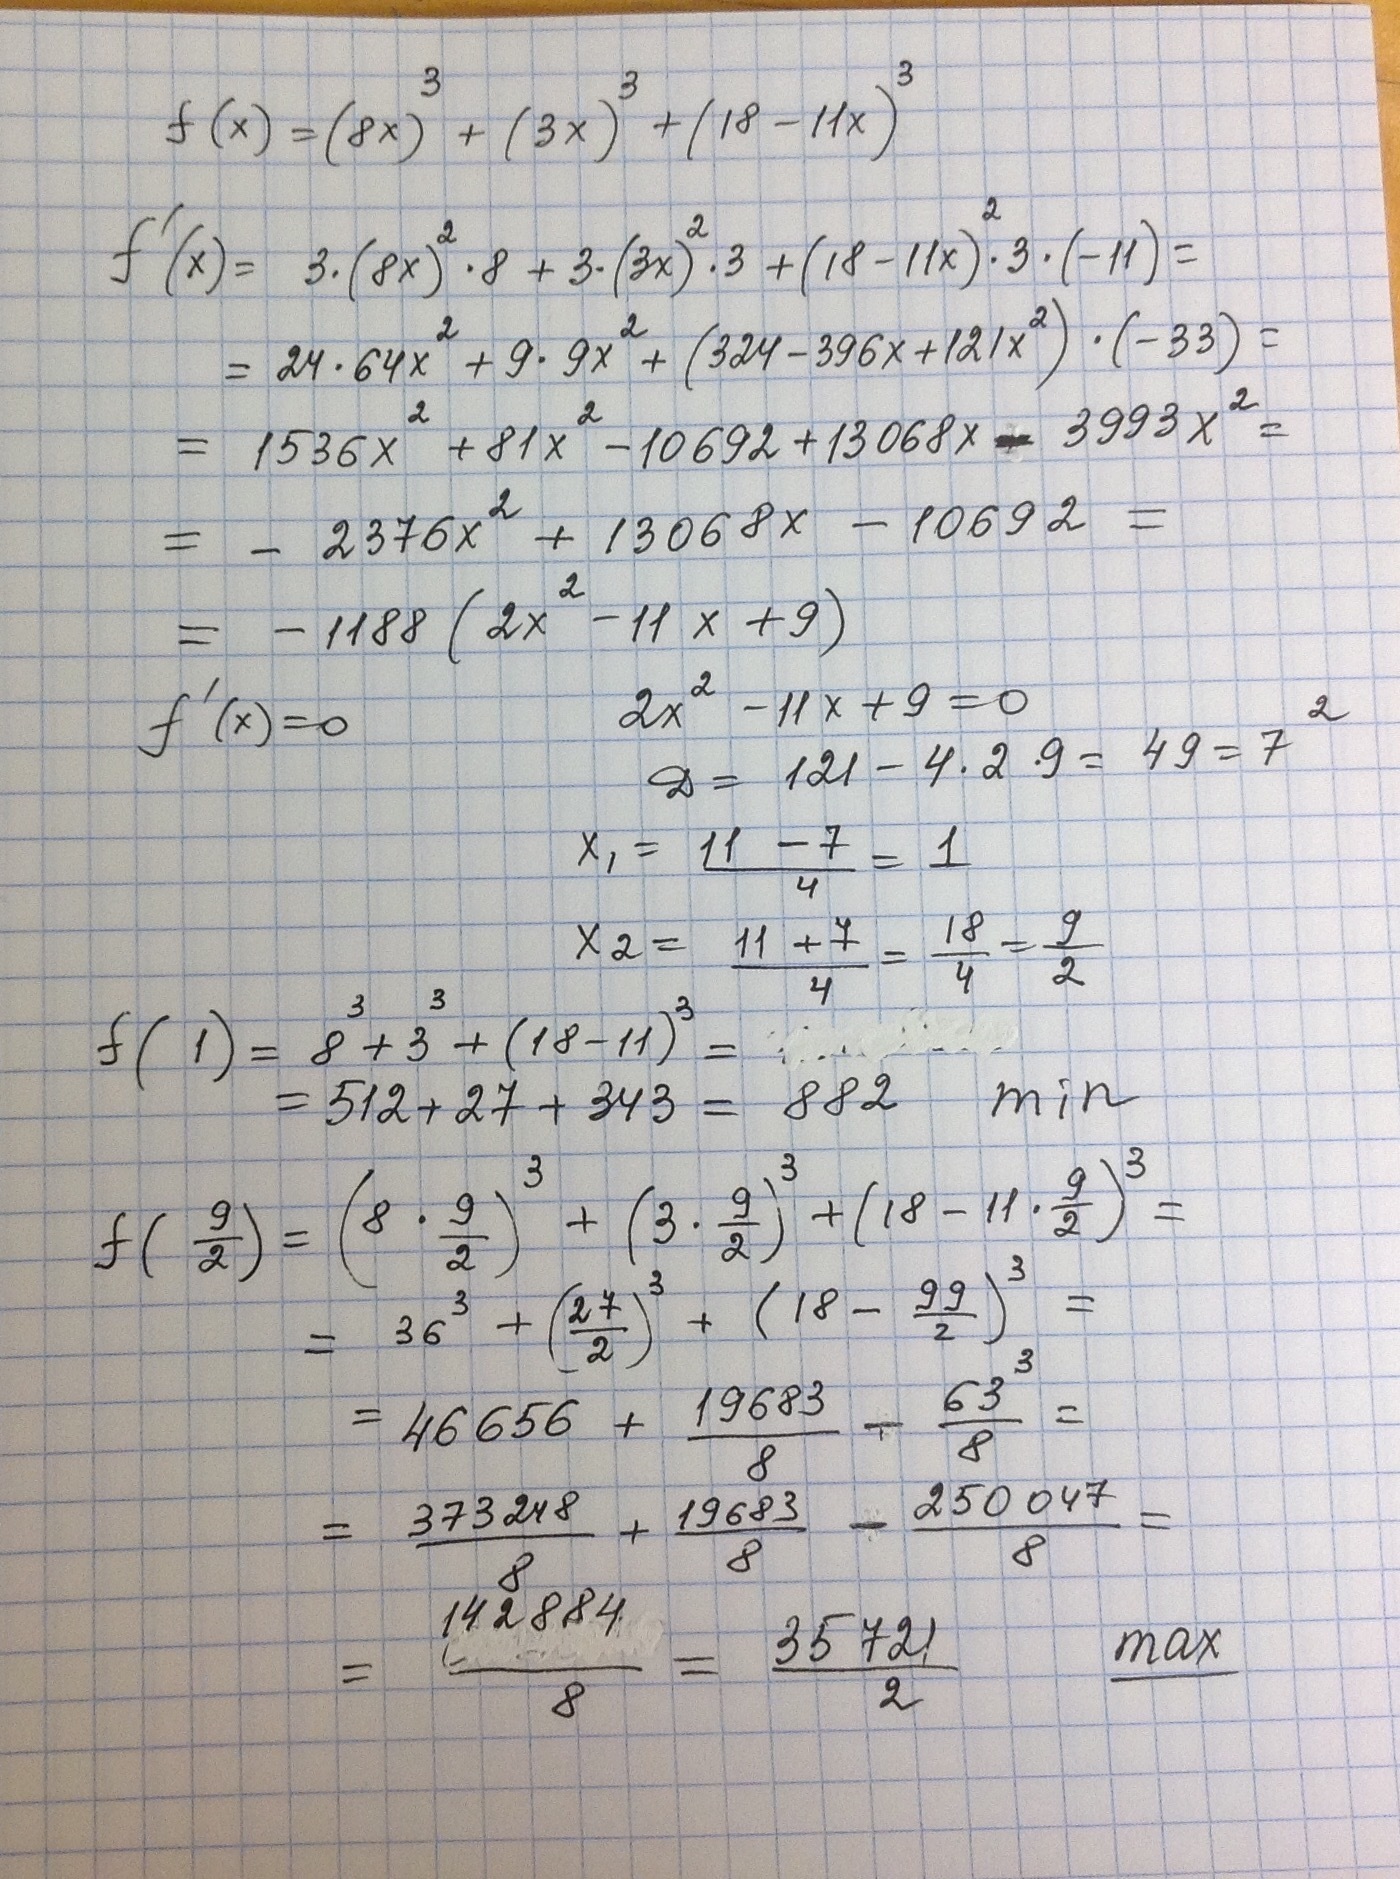 f(x) = (8x)³ + (3x)³ + (18 - 11x)³
f'(x) = 3·(8x)²·8 + 3·(3x)²·3 + (18 - 11x)²·3·(-11) =
= 24·64x² + 9·9x² + (324 - 396x + 121x²)·(-33) =
= 1536x² + 81x² - 10692 + 13068x - 3993x² =
= - 2376x² + 13068x - 10692 =
= - 1188 (2x² - 11x + 9)
f'(x) = 0 2x² - 11x + 9 = 0
D = 121 - 4·2·9 = 49 = 7²
x₁ = (11 - 7)/4 = 1
x2 = (11 + 7)/4 = 18/4 = 9/2
f(1) = 8³ + 3³ + (18 - 11)³ =
= 512 + 27 + 343 = 882 min
f(9/2) = (8·9/2)³ + (3·9/2)³ + (18 - 11·9/2)³ =
= 36³ + (27/2)³ + (18 - 99/2)³ =
= 46656 + 19683/8 - 63³/8 =
= 373248/8 + 19683/8 - 250047/8 =
= 142884/8 = 35721/2 max